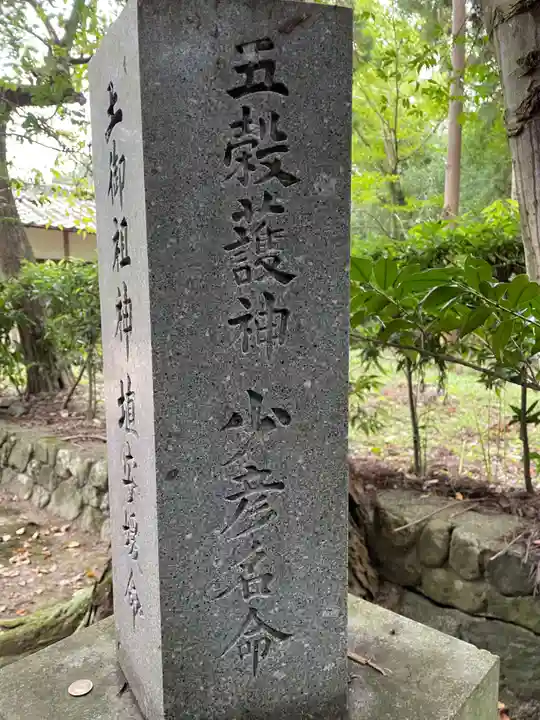 五穀護神 少彦名命
土御祖神 埴安媛命